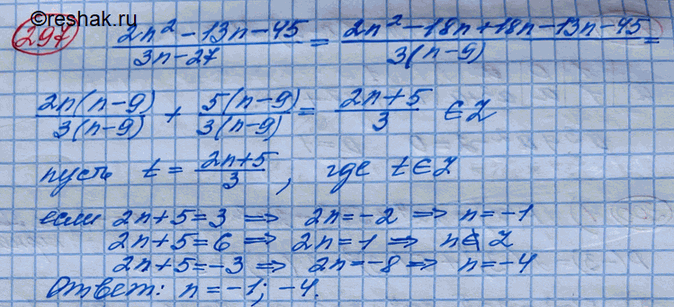 ©reshak.ru
297 (2n² - 13n - 45)/(3n - 27) = (2n² - 18n + 18n - 13n - 45)/(3(n - 9)) =
(2n(n - 9))/(3(n - 9)) + (5(n - 9))/(3(n - 9)) = (2n + 5)/3 ∈ Z
пусть t = (2n + 5)/3, где t ∈ Z
если 2n + 5 = 3 ⇒ 2n = -2 ⇒ n = -1
2n + 5 = 6 ⇒ 2n = 1 ⇒ n ∉ Z
2n + 5 = -3 ⇒ 2n = -8 ⇒ n = -4
Ответ: n = -1; -4.